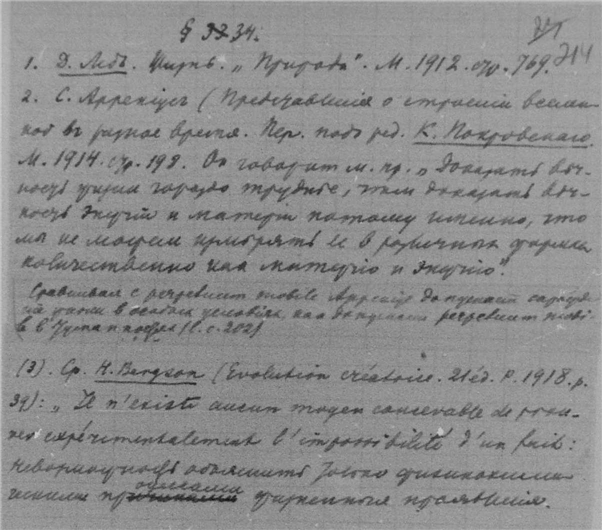 § 34.
214
1. Д. Лёб. Журн. „Природа“. М. 1912. стр. 769.
2. С. Аррениус (Представления о строении вселен-
ной в разное время. Пер. под ред. К. Покровского.
М. 1914. стр. 198. Он говорит м. пр. „Доказать веч-
ность жизни гораздо труднее, чем доказать веч-
ность энергии и материи потому именно, что
мы не можем измерять ее в различных формах
количественно как материю и энергию“.
Сравнивая с perpetuum mobile Аррениус допускает
в особых условиях, как допускает perpetuum mobi-
(l. c. 202)
(3). Ср. H. Bergson (Evolution créatrice. 21 éd. P. 1918. p.
39): „Il n'existe aucun moyen concevable de prou-
ver expérimentalement l'impossibilité d'un fait:
невозможность объяснить только физикохими-
ческими жизненные проявления.